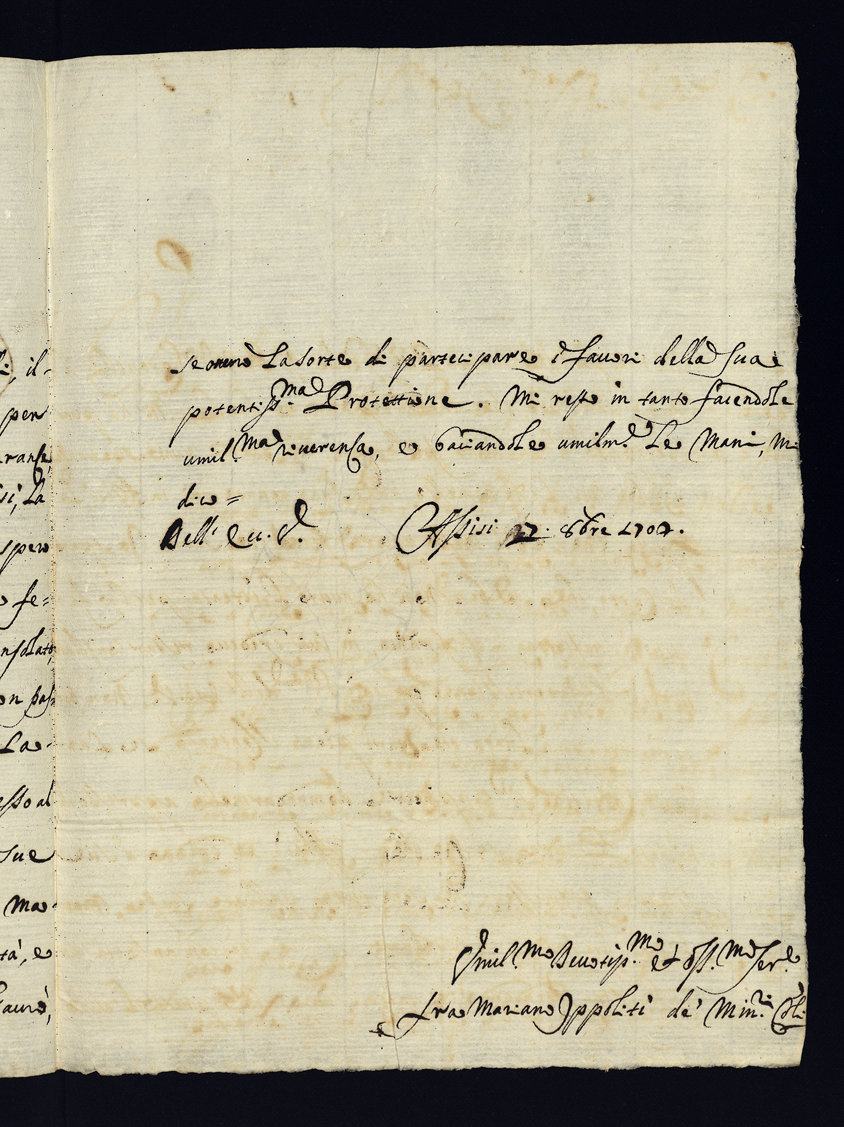 se averò La sorte di partecipare i favori della sua
potentiss.ma Protettione. Mi resto in tanto facendole
umil.ma riverenza, e baciandole umilm.e le Mani, mi
dico =
Dell' Ecc. V. Assisi 27. 8bre 1707.
Umil.mo Devotiss.mo et oss.mo Ser.e
fra Mariano Ippoliti de' Min.ri
il-
per
ranza
si, La
spero
fe=
nsolato
on pas
La
esso al
sue
Ma
tà, e